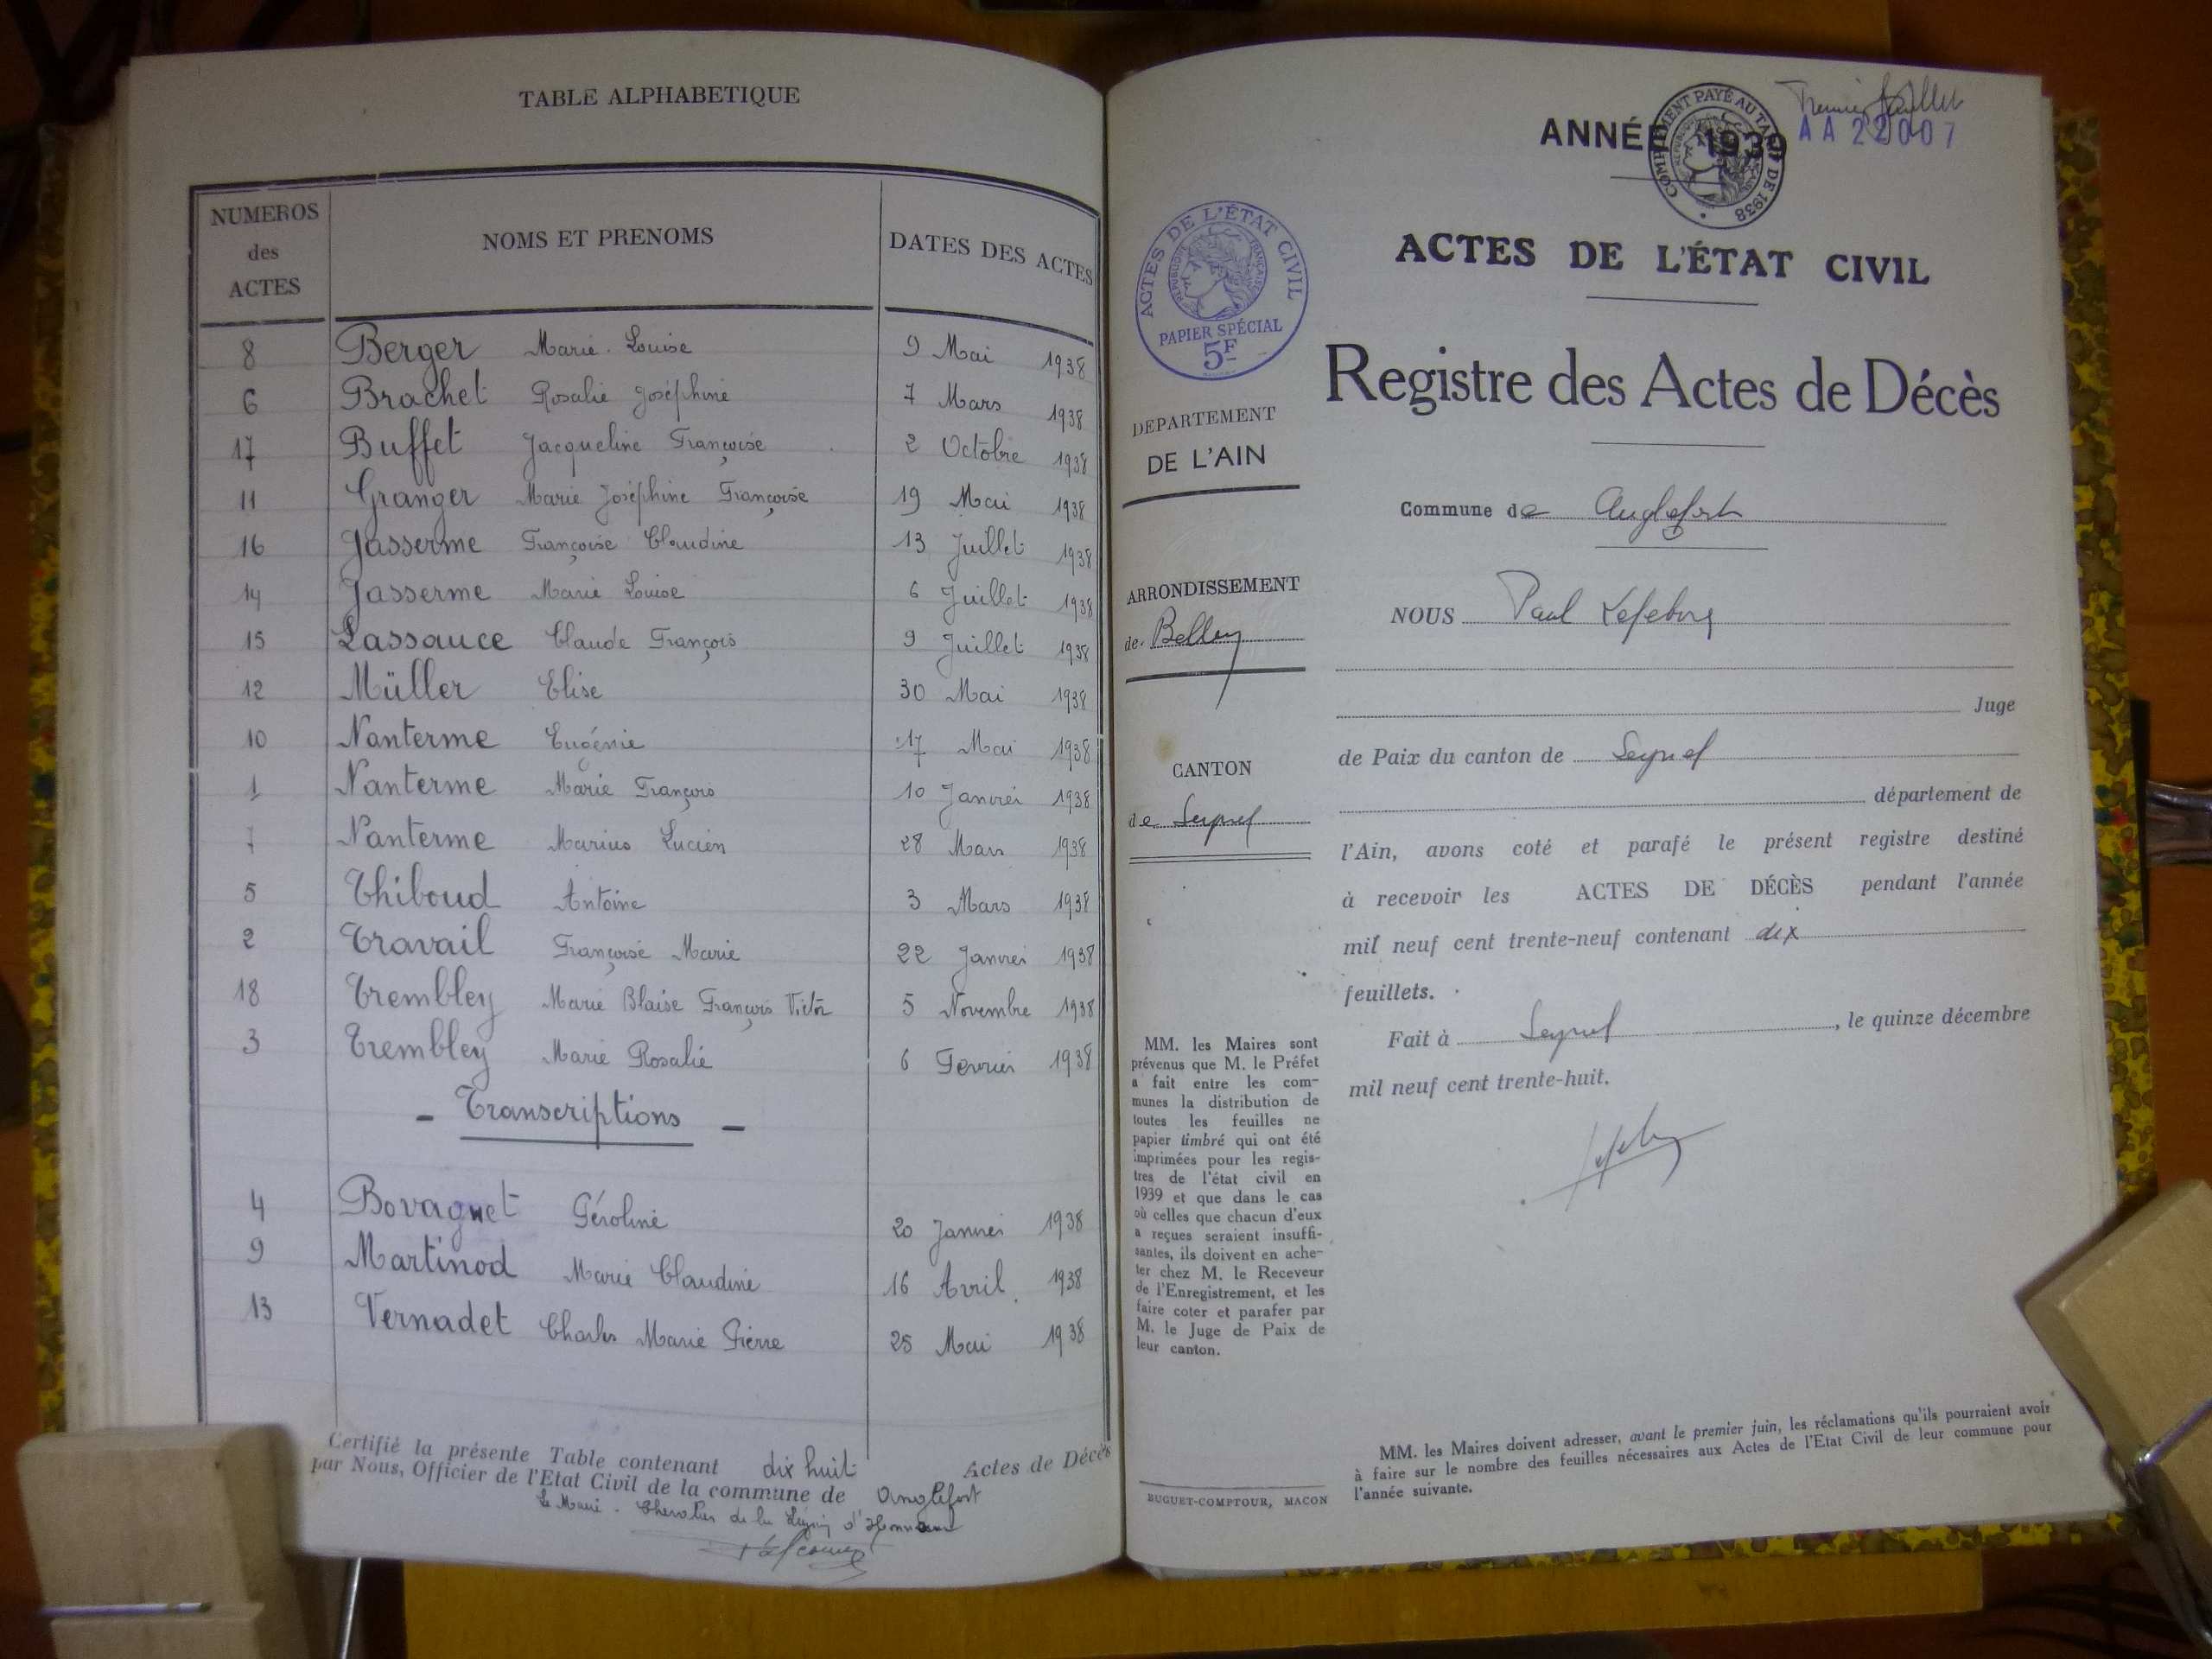 TABLE ALPHABETIQUE
NUMEROS
des
ACTES
NOMS ET PRENOMS
DATES DES ACTES
8 Berger Marie-Louise 9 Mai 1938
6 Brachet Rosalie Joséphine 7 Mars 1938
17 Buffet Jacqueline Françoise 2 Octobre 1938
11 Granger Marie Joséphine Françoise 19 Mai 1938
16 Jasserme Françoise Claudine 13 Juillet 1938
14 Jasserme Marie Louise 6 Juillet 1938
15 Lassauce Claude François 9 Juillet 1938
12 Müller Elise 30 Mai 1938
10 Nanterme Eugénie 17 Mai 1938
1 Nanterme Marie François 10 Janvier 1938
7 Nanterme Marius Lucien 28 Mars 1938
5 Thiboud Antoine 3 Mars 1938
2 Travail Françoise Marie 22 Janvier 1938
18 Trembley Marie Blaise François Victor 5 Novembre 1938
3 Trembley Marie Rosalie 6 Fevrier 1938
- Transcriptions -
4 Bovagnet Géroline 20 Janvier 1938
9 Martinod Marie Claudine 16 Avril 1938
13 Vernadet Charles Marie Pierre 25 Mai 1938
Certifié la présente Table contenant dix huit Actes de Décès
par Nous, Officier de l'Etat Civil de la commune de Anglefort
Le Maire - Chevalier de la Légion d'Honneur
Premier feuillet
ANNÉE 1939 AA 22007
COMPLEMENT PAYÉ AU TARIF DE 1938
ACTES DE L'ÉTAT CIVIL
REPUBLIQUE FRANÇAISE
PAPIER SPÉCIAL
5F
ACTES DE L'ÉTAT CIVIL
Registre des Actes de Décès
DEPARTEMENT
DE L'AIN
ARRONDISSEMENT
de Belley
CANTON
de Seyssel
MM. les Maires sont
prévenus que M. le Préfet
a fait entre les com-
munes la distribution de
toutes les feuilles ne
papier timbré qui ont été
imprimées pour les regis-
tres de l'état civil en
1939 et que dans le cas
où celles que chacun d'eux
a reçues seraient insuffi-
santes, ils doivent en ache-
ter chez M. le Receveur
de l'Enregistrement, et les
faire coter et parafer par
M. le Juge de Paix de
leur canton.
BUGUET-COMPTOUR, MACON
Commune de Anglefort
NOUS Paul Lefebvre
Juge
de Paix du canton de Seyssel
département de
l'Ain, avons coté et parafé le présent registre destiné
à recevoir les ACTES DE DÉCÈS pendant l'année
mil neuf cent trente-neuf contenant dix
feuillets.
Fait à Seyssel, le quinze décembre
mil neuf cent trente-huit.
MM. les Maires doivent adresser, avant le premier juin, les réclamations qu'ils pourraient avoir
à faire sur le nombre des feuilles nécessaires aux Actes de l'Etat Civil de leur commune pour
l'année suivante.